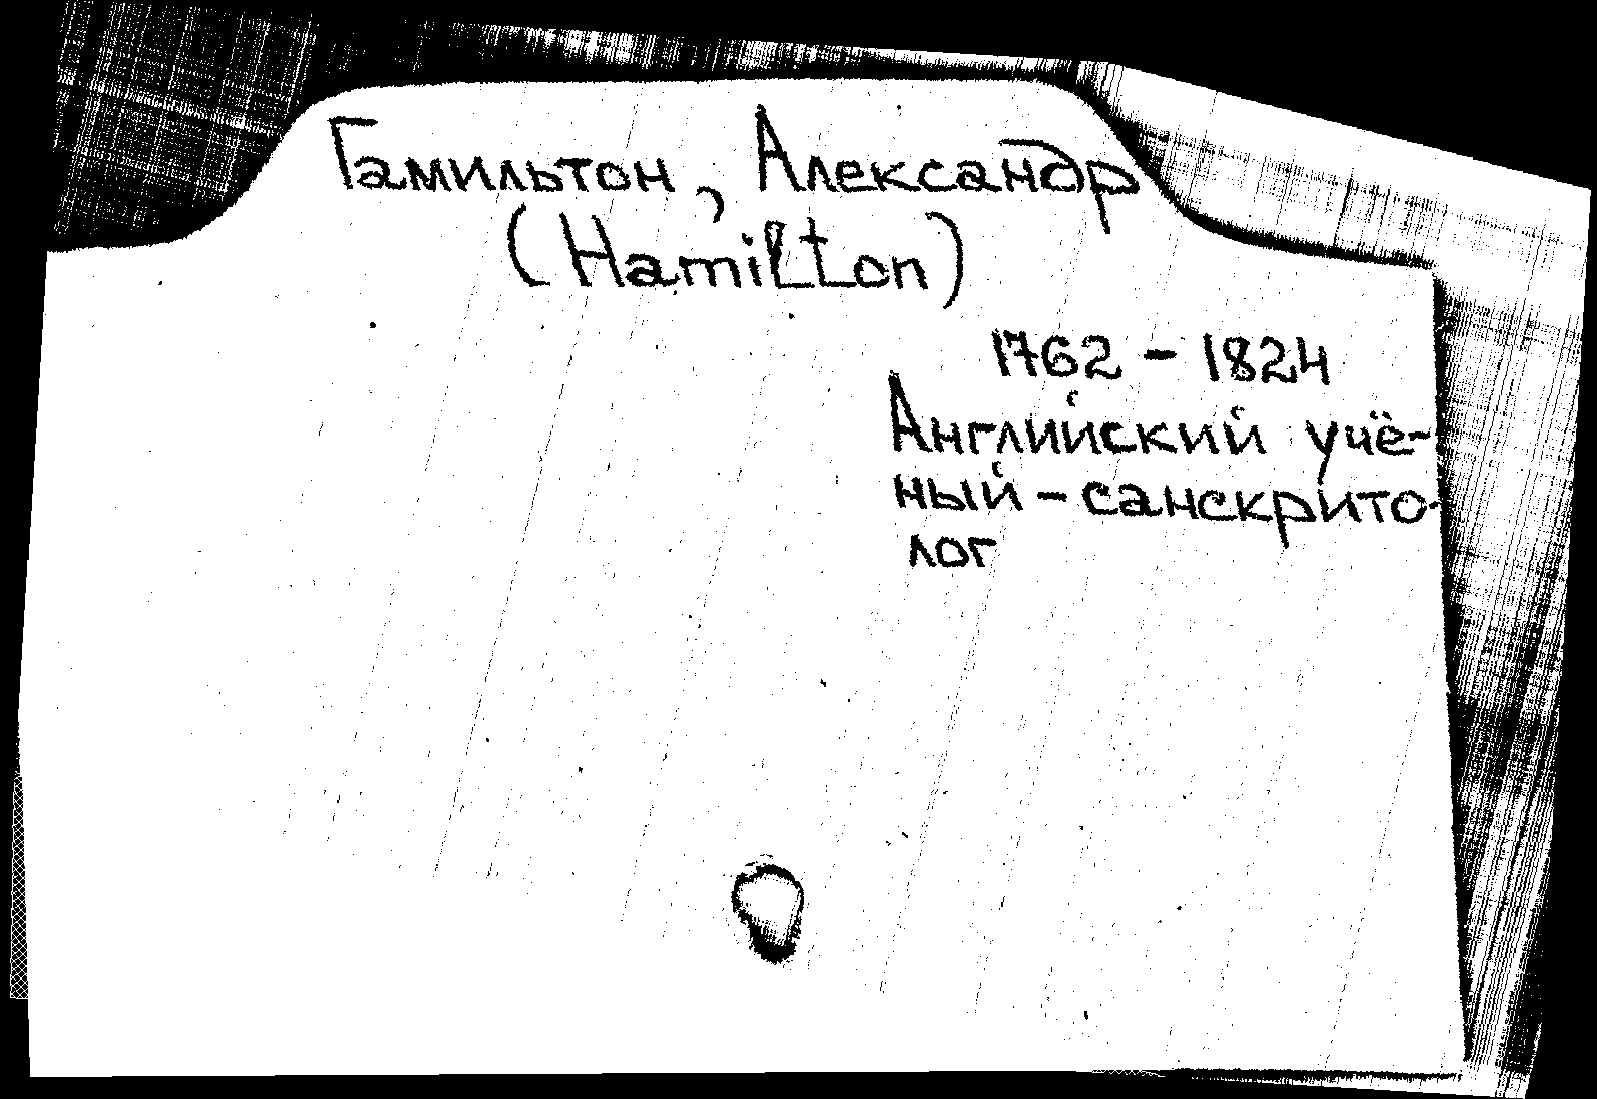 Гамильтон, Александр
(Hamilton)
1762 - 1824
Английский учё-
ный - санскрито-
лог